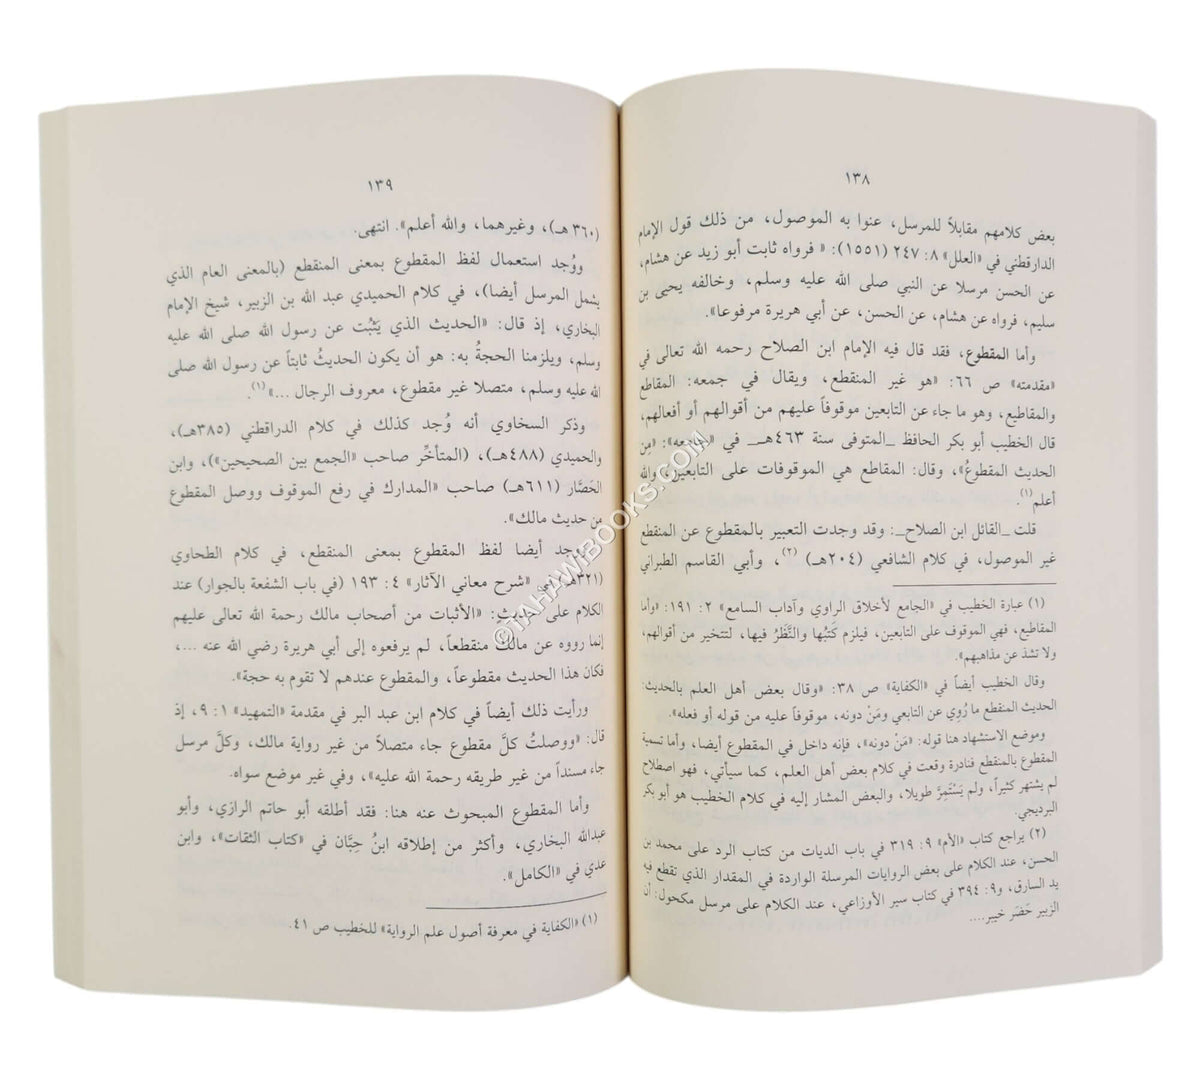 ١٣٨
بعض كلامهم مقابلاً للمرسل، عنوا به الموصول، من ذلك قول الإمام
الدارقطني في «العلل» ٨: ٢٤٧ (١٥٥١): « فرواه ثابت أبو زيد عن هشام،
عن الحسن مرسلا عن النبي صلى الله عليه وسلم، وخالفه يحيى بن
سليم، فرواه عن هشام، عن الحسن، عن أبي هريرة مرفوعا».
وأما المقطوع، فقد قال فيه الإمام ابن الصلاح رحمه الله تعالى في
«مقدمته» ص ٦٦: «هو غير المنقطع، ويقال في جمعه: المقاطع
والمقاطيع، وهو ما جاء عن التابعين موقوفاً عليهم من أقوالهم أو أفعالهم،
قال الخطيب أبو بكر الحافظ _المتوفى سنة ٤٦٣هـ_ في «جامعه»: «مِن
الحديث المقطوعُ»، وقال: المقاطع هي الموقوفات على التابعين، والله
أعلم(١).
قلت _القائل ابن الصلاح_: وقد وجدت التعبير بالمقطوع عن المنقطع
غير الموصول، في كلام الشافعي (٢٠٤هـ) (٢)، وأبي القاسم الطبراني
(١) عبارة الخطيب في «الجامع لأخلاق الراوي وآداب السامع» ٢: ١٩١: «وأما
المقاطيع، فهي الموقوف على التابعين، فيلزم كَتبُها والنَّظَرُ فيها، لتتخير من أقوالهم،
ولا تشذ عن مذاهبهم».
وقال الخطيب أيضاً في «الكفاية» ص ٣٨: «وقال بعض أهل العلم بالحديث:
الحديث المنقطع ما رُوِي عن التابعي ومَنْ دونه، موقوفاً عليه من قوله أو فعله».
وموضع الاستشهاد هنا قوله: «مَنْ دونه»، فإنه داخل في المقطوع أيضا، وأما تسمية
المقطوع بالمنقطع فنادرة وقعت في كلام بعض أهل العلم، كما سيأتي، فهو اصطلاح
لم يشتهر كثيراً، ولم يَسْتَمِرَّ طويلا، والبعض المشار إليه في كلام الخطيب هو أبو بكر
البرديجي.
(٢) يراجع كتاب «الأم» ٩: ٣١٩ في باب الديات من كتاب الرد على محمد بن
الحسن، عند الكلام على بعض الروايات المرسلة الواردة في المقدار الذي تقطع فيه
يد السارق، و٩: ٣٩٤ في كتاب سير الأوزاعي، عند الكلام على مرسل مكحول: أن
الزبير حَضَر خيبر....
١٣٩
(٣٦٠هـ)، وغيرهما، والله أعلم». انتهى.
ووُجد استعمال لفظ المقطوع بمعنى المنقطع (بالمعنى العام الذي
يشمل المرسل أيضا)، في كلام الحميدي عبد الله بن الزبير، شيخ الإمام
البخاري، إذ قال: «الحديث الذي يَثْبُت عن رسول الله صلى الله عليه
وسلم، ويلزمنا الحجةُ به: هو أن يكون الحديثُ ثابتاً عن رسول الله صلى
الله عليه وسلم، متصلا غير مقطوع، معروف الرجال ...»(١).
وذكر السخاوي أنه وُجد كذلك في كلام الدراقطني (٣٨٥هـ)،
والحميدي (٤٨٨هـ)، (المتأخِّر صاحب «الجمع بين الصحيحين»)، وابن
الحَصَّار (٦١١هـ) صاحب «المدارك في رفع الموقوف ووصل المقطوع
من حديث مالك».
ووجد أيضا لفظ المقطوع بمعنى المنقطع، في كلام الطحاوي
(٣٢١هـ) في «شرح معاني الآثار» ٤: ١٩٣ (في باب الشفعة بالجوار) عند
الكلام على حديث: «الأثبات من أصحاب مالك رحمة الله تعالى عليهم
إنما رووه عن مالك منقطعاً، لم يرفعوه إلى أبي هريرة رضي الله عنه ...،
فكان هذا الحديث مقطوعاً، والمقطوع عندهم لا تقوم به حجة».
ورأيت ذلك أيضاً في كلام ابن عبد البر في مقدمة «التمهيد» ١: ٩، إذ
قال: «ووصلتُ كلَّ مقطوع جاء متصلاً من غير رواية مالك، وكلَّ مرسل
جاء مسنداً من غير طريقه رحمة الله عليه»، وفي غير موضع سواه.
وأما المقطوع المبحوث عنه هنا: فقد أطلقه أبو حاتم الرازي، وأبو
عبدالله البخاري، وأكثر من إطلاقه ابنُ حِبَّان في «كتاب الثقات»، وابن
عدي في «الكامل».
(١) «الكفاية في معرفة أصول علم الرواية» للخطيب ص ٤١.
©TAHAWIBOOKS.COM